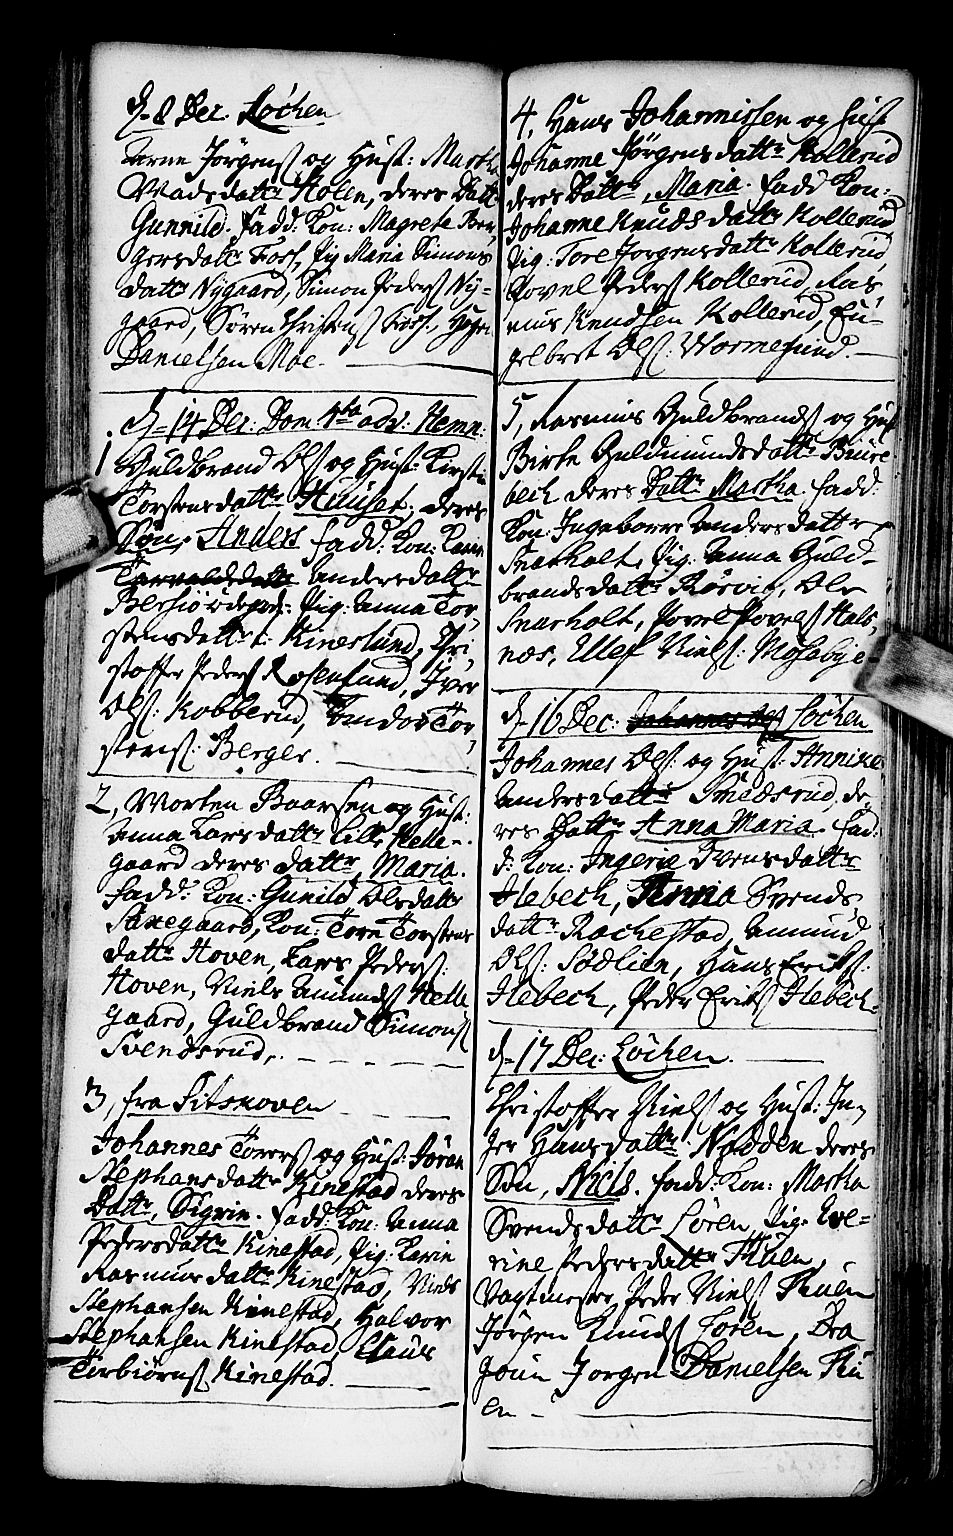 d. 8 Dec. Løchen
Arne Jørgens: og Hust: Martha
Madsdattr Holen, deres Dattr
Gunnild. fadd: Kon: Magrete Ben,
gersdattr Foss, Pig Maria Simons
dattr Nygaard, Simon Peders: Ny-
gaard, Søren Christens: Foss,
Danielsen Moe.
d. 14 Dec: Dom 4ta adv: Hemn:
1 Guldbrand Ols: og Hust: Kirsti
Torstensdattr Huuset, deres
Søn, Anders fadd: Kon: Karin
Andersdattr
Pig: Anna Tor,
stensdattr Kineslund, Chri
stoffer Peders: Rosenlund, Iver
Ols: Kobberud, Tor
stens: Berger.
2, Morten Baarsen og Hust:
Anna Larsdattr Lille Helle-
gaard deres dattr, Maria.
fadd: Kon: Gunild Olsdattr
Kon: Torn Torstens
dattr Hoven, Lars Peders:
Hoven, Niels Amunds: Helle
gaard, Guldbrand Simons:
Svendsrud,
3, fra Sitskoven
Johannes Torers: og Hust: Jøran
Stephansdattr Kinestad deres
Dattr, Sigrin. fadd: Kon: Anna
Pedersdattr Kinestad, Pig: Karin
Rasmusdattr Kinestad, Niels
Stephansen Kinestad, Halvor
Stephansen Kinestad, Claus
Torbiørns: Kinestad.
4, Hans Johannissen og Hust
Johanne Jørgensdattr Kollerud
deres Dattr, Maria. fadd Kon:
Johanne Knudsdattr Kollerud
Pig: Tore Jorgensdattr Kollerud,
Povel Peders: Kollerud, Ras
mus Knudsen Kollerud, En-
gelbret Ols: Wormesund.
5, Rasmus Guldbrands: og Hust
Birte Guldmundsdattr Buure
bech deres Dattr, Martha. fadd:
Kon: Ingaborre Andersdattr
Snarholt, Pig: Anna Guld-
brandsdattr Rørvig, Ole
Snarholt, Povel Povels: Hals,
næs, Ellef Niels: Mosebye-
d. 16 Dec: Løchen
Johannes Ols: og Hust: Annike
Andersdattr Smedsrud, de,
res Dattr Anna Maria. fad:
d: Kon: Ingerie Ivensdattr
Hebech, Anna Svends
dattr Rachestad, Amund
Ols: Sødlien, Hans Eriks:
Hebech, Peder Eriks: Hebech-
d. 17 Dec: Løchen.
Christoffer Niels: og Hust: In,
ger Hansdattr Nodden deres
Søn, Niels. fadd: Kon: Martha
Svendsdattr Løren, Pig: Eve-
rine Pedersdattr Thuen,
Vagtmester Peder Niels: Thuen
Jørgen Knuds: Løren, Dra
goun Jorgen Danielsen Thu
en -